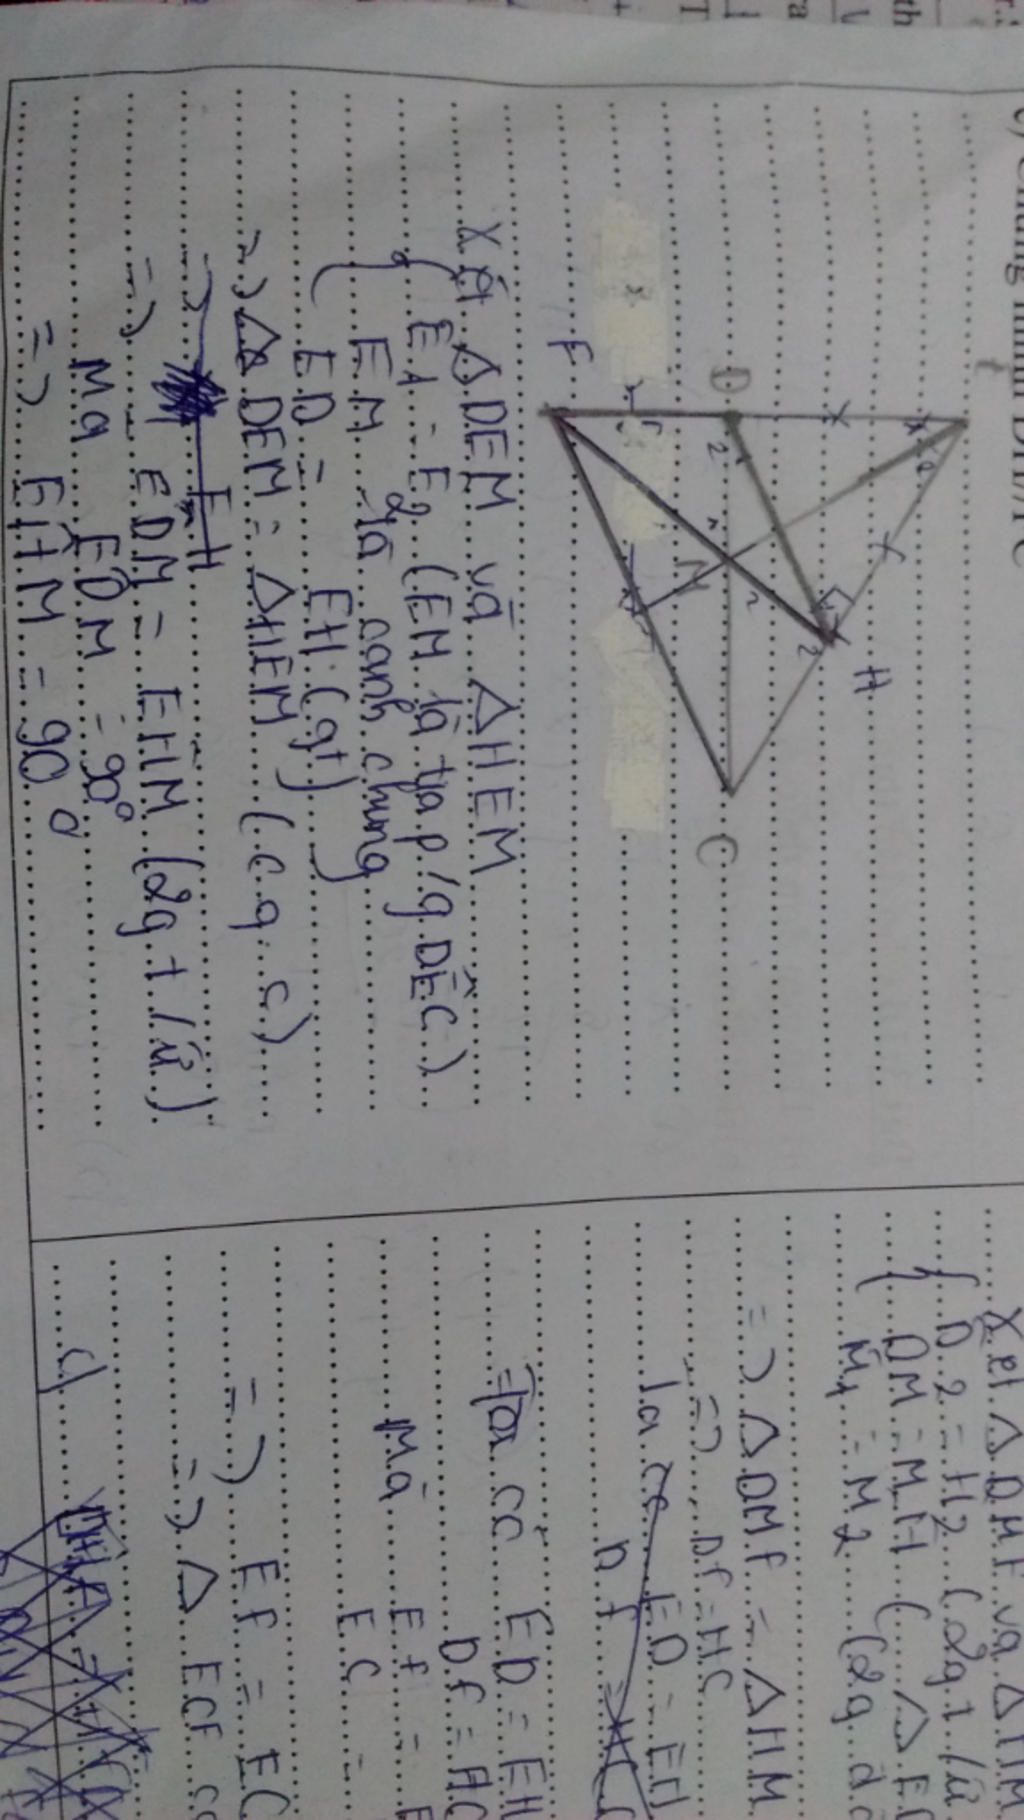 c) Chứng minh DH//FC
E
D
H
M
F
C
Xét ΔDEM và ΔHEM
E1 = E2 (EM là tia p/g DEC)
EM là cạnh chung
ED = EH (gt)
=) Δ DEM = ΔHEM (c g c)
=) EDM = EHM (2g t/ư)
Mà EDM = 90°
=) EHM = 90°
Xét Δ DMF và ΔHM
D2 = H2 (2g t/ư
DM = MH ( Δ E
M1 = M2 (2g đ
=) Δ DMF = ΔHM
=) DF = HC
Ta có ED = EH
DF = HC
Mà EF = E
EC =
=) EF = EC
=) Δ ECF c
c)